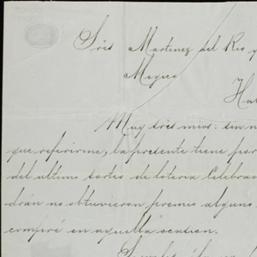 Sres Martinez del Rio y
Mexico
Ha
Muy Sres mios: sin
que referirme, la presente tiene por
del ultimo sorteo de loteria celebra
drán no obtuvieron premio alguno
compré en aquella